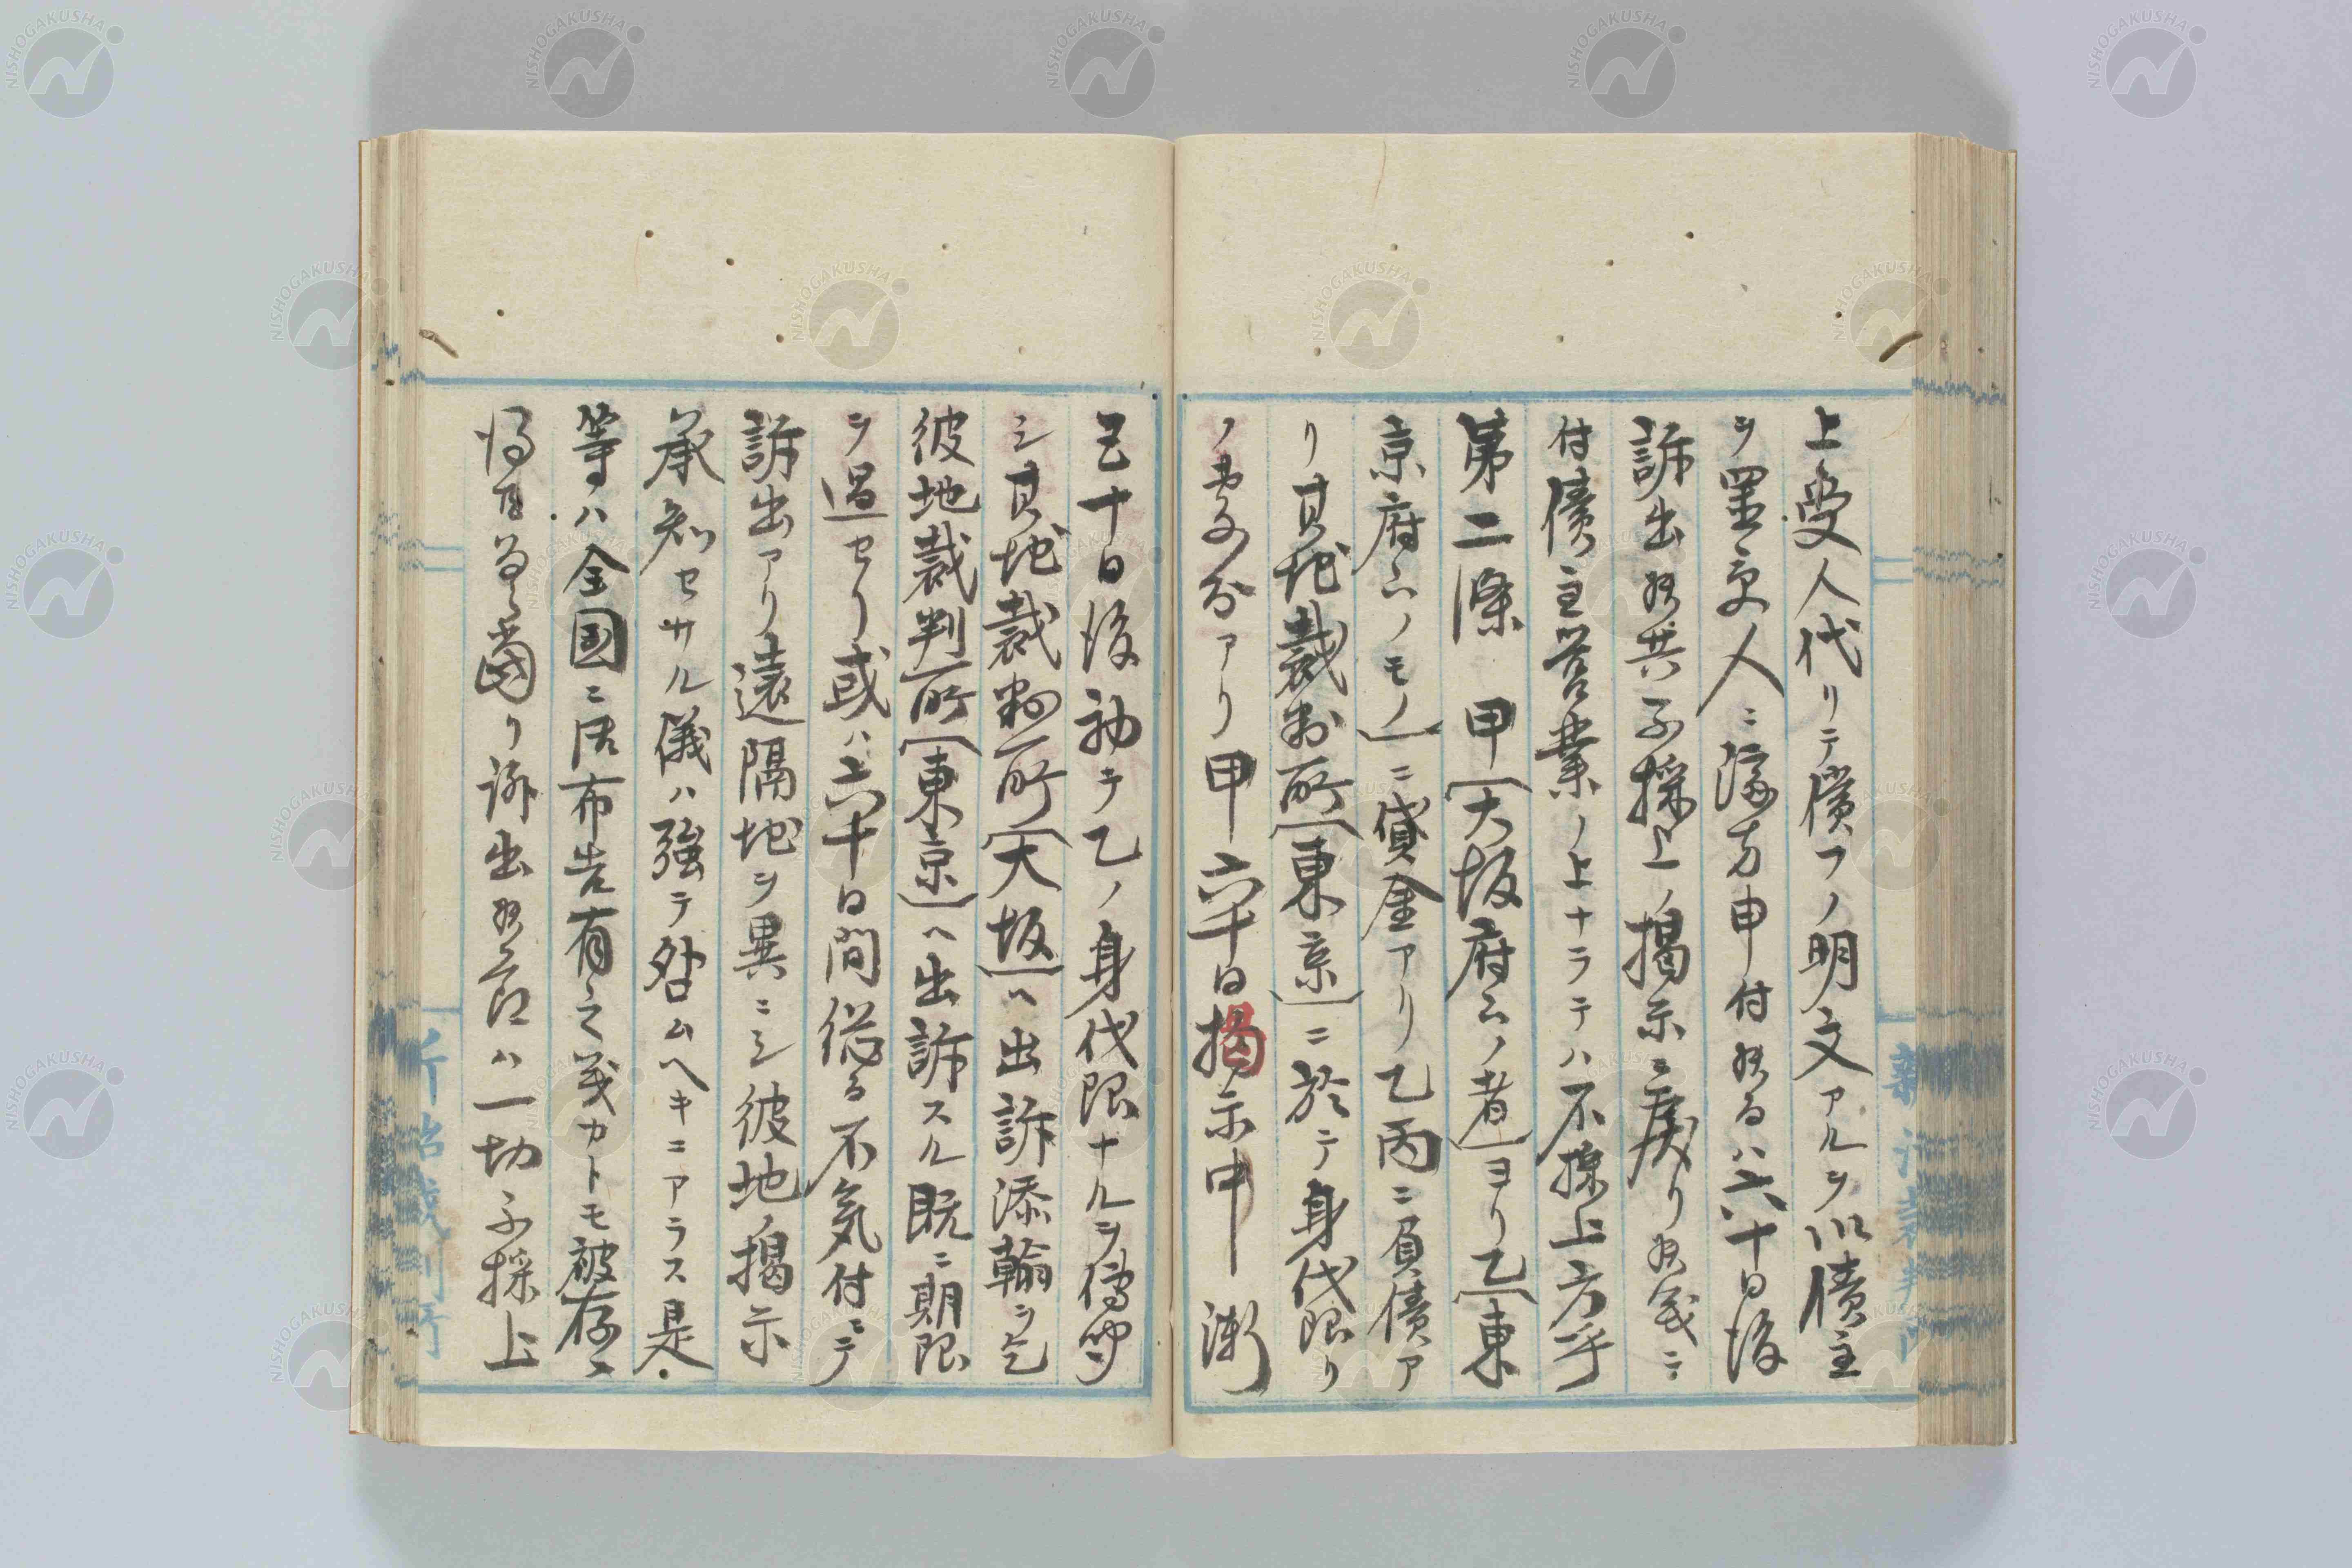 上受人代リテ償フノ明文アルヲ以債主
ヲ罣受人ニ済方申付ルハ六十日後
訴出候共不採上ノ掲示ニ戻リ候義ニ
付債主営業ノ上ナラテハ不採上方乎
第二條　甲(大坂府下ノ者)ヨリ乙(東
京府下ノモノ)ニ貸金アリ乙丙ニ負債ア
リ其地裁判所(東京)ニ於テ身代限リ
ノ処分アリ甲六十日掲示中漸
五十日後初テ乙ノ身代限ナルヲ傳聞
シ其地裁判所(大坂)ヘ出訴添翰ヲ乞
彼地裁判所(東京)ヘ出訴スル既ニ期限
ヲ過セリ或ハ六十日間従る不気付ニテ
訴出アリ遠隔地ヲ異ニシ彼地ノ掲示
承知セサル儀ハ強テ咎ムヘキニアラス是
等ハ全国ニ御布告有之義カトモ被存候
得日当リ訴出候節ハ一切不採上
NISHOGAKUSHA